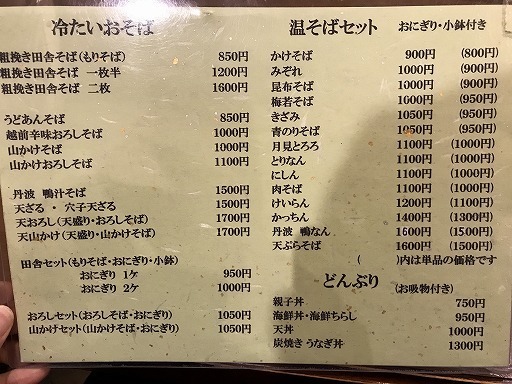 冷たいおそば
粗挽き田舎そば(もりそば) 850円
粗挽き田舎そば 一枚半 1200円
粗挽き田舎そば 二枚 1600円
うどあんそば 850円
越前辛味おろしそば 1000円
山かけそば 1000円
山かけおろしそば 1100円
丹波 鴨汁そば 1500円
天ざる・穴子天ざる 1500円
天おろし(天盛り・おろしそば) 1700円
天山かけ(天盛り・山かけそば) 1700円
田舎セット(もりそば・おにぎり・小鉢)
おにぎり 1ケ 950円
おにぎり 2ケ 1000円
おろしセット(おろしそば・おにぎり) 1050円
山かけセット(山かけそば・おにぎり) 1050円
温そばセット おにぎり・小鉢付き
かけそば 900円 (800円)
みぞれ 1000円 (900円)
昆布そば 1000円 (900円)
梅若そば 1600円 (950円)
きざみ 1050円 (950円)
青のりそば 1050円 (950円)
月見とろろ 1100円 (1000円)
とりなん 1100円 (1000円)
にしん 1100円 (1000円)
肉そば 1100円 (1000円)
けいらん 1200円 (1100円)
かっちん 1400円 (1300円)
丹波 鴨なん 1600円 (1500円)
天ぷらそば 1600円 (1500円)
( )内は単品の価格です
どんぶり (お吸物付き)
親子丼 750円
海鮮丼・海鮮ちらし 950円
天丼 1000円
炭焼き うなぎ丼 1300円